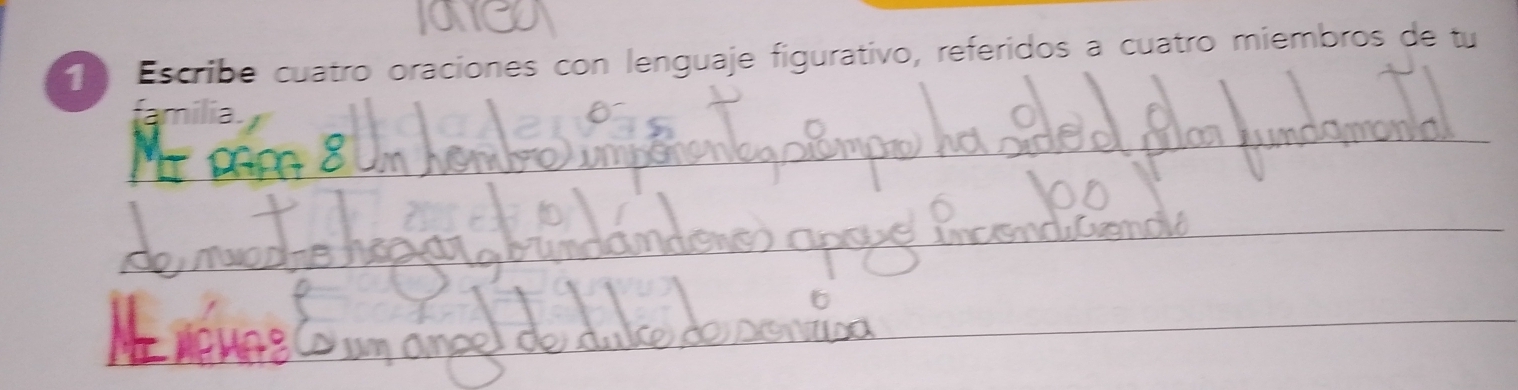 Tarea
1 Escribe cuatro oraciones con lenguaje figurativo, referidos a cuatro miembros de tu
familia.
Mi papá: Un hombre imponente, siempre ha sido el plan fundamental
de nuestro hogar, brindándonos apoyo incondicional
Mi mamá: Es un angel de dulce de sonrisa